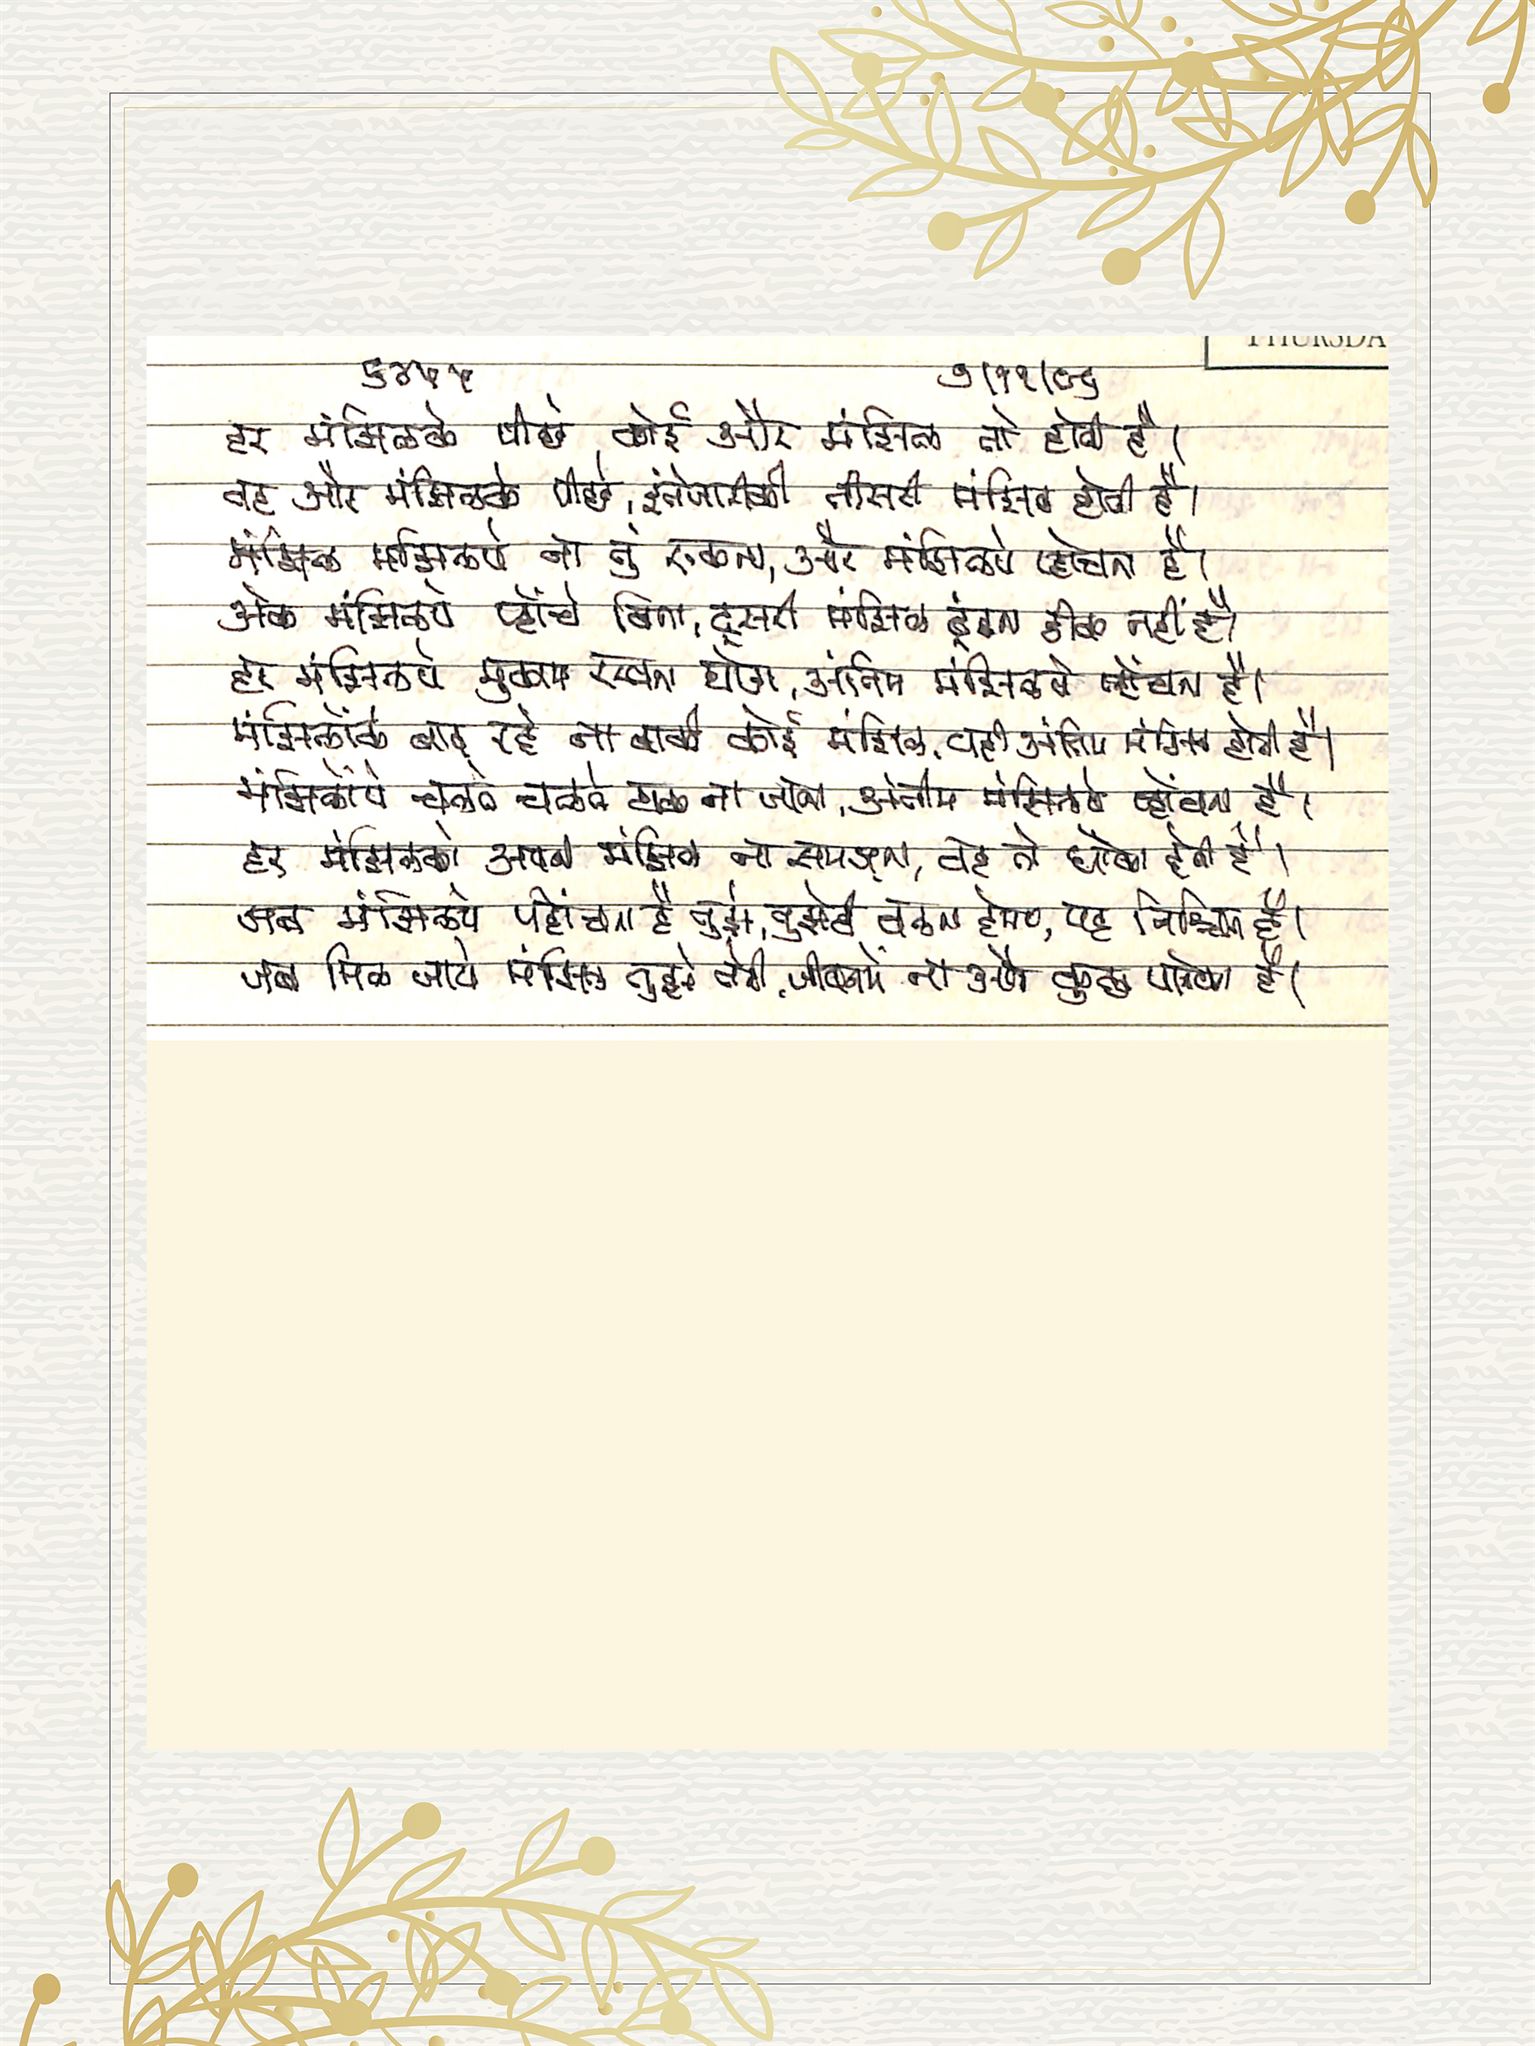 THURSDA
५४५५ ७/११/८६
हर मंझिलके पीछे, कोई और मंझिल तो होती है।
वह और मंझिलके पीछे, इंतेजारीकी तीसरी मंझिल होती है।
मंझिल मंझिलपे ना तुं रुकना, और मंझिलपे प्होंचना है।
अेक मंझिलपे प्होंचे बिना, दूसरी मंझिल ढूंढना ठीक नहीं है।
हर मंझिलपे मुकाम रखना थोडा, अंतिम मंझिलपे प्होंचना है।
मंझिलोंके बाद रहे ना बाकी कोई मंझिल, वही अंतिम मंझिल होती है।
मंझिलोंपे चलते चलते थक ना जाना, अंतीम मंझिलपे प्होंचना है।
हर मंझिलको अपनी मंझिल ना समझना, वह तो धोका देती है।
जब मंझिलपे पहोंचना है तुझे, तुझेही चलना होगा, यह निश्चित है।
जब मिल जाये मंझिल तुझे तेरी, जीवनमें ना और कुछ पानेका है।